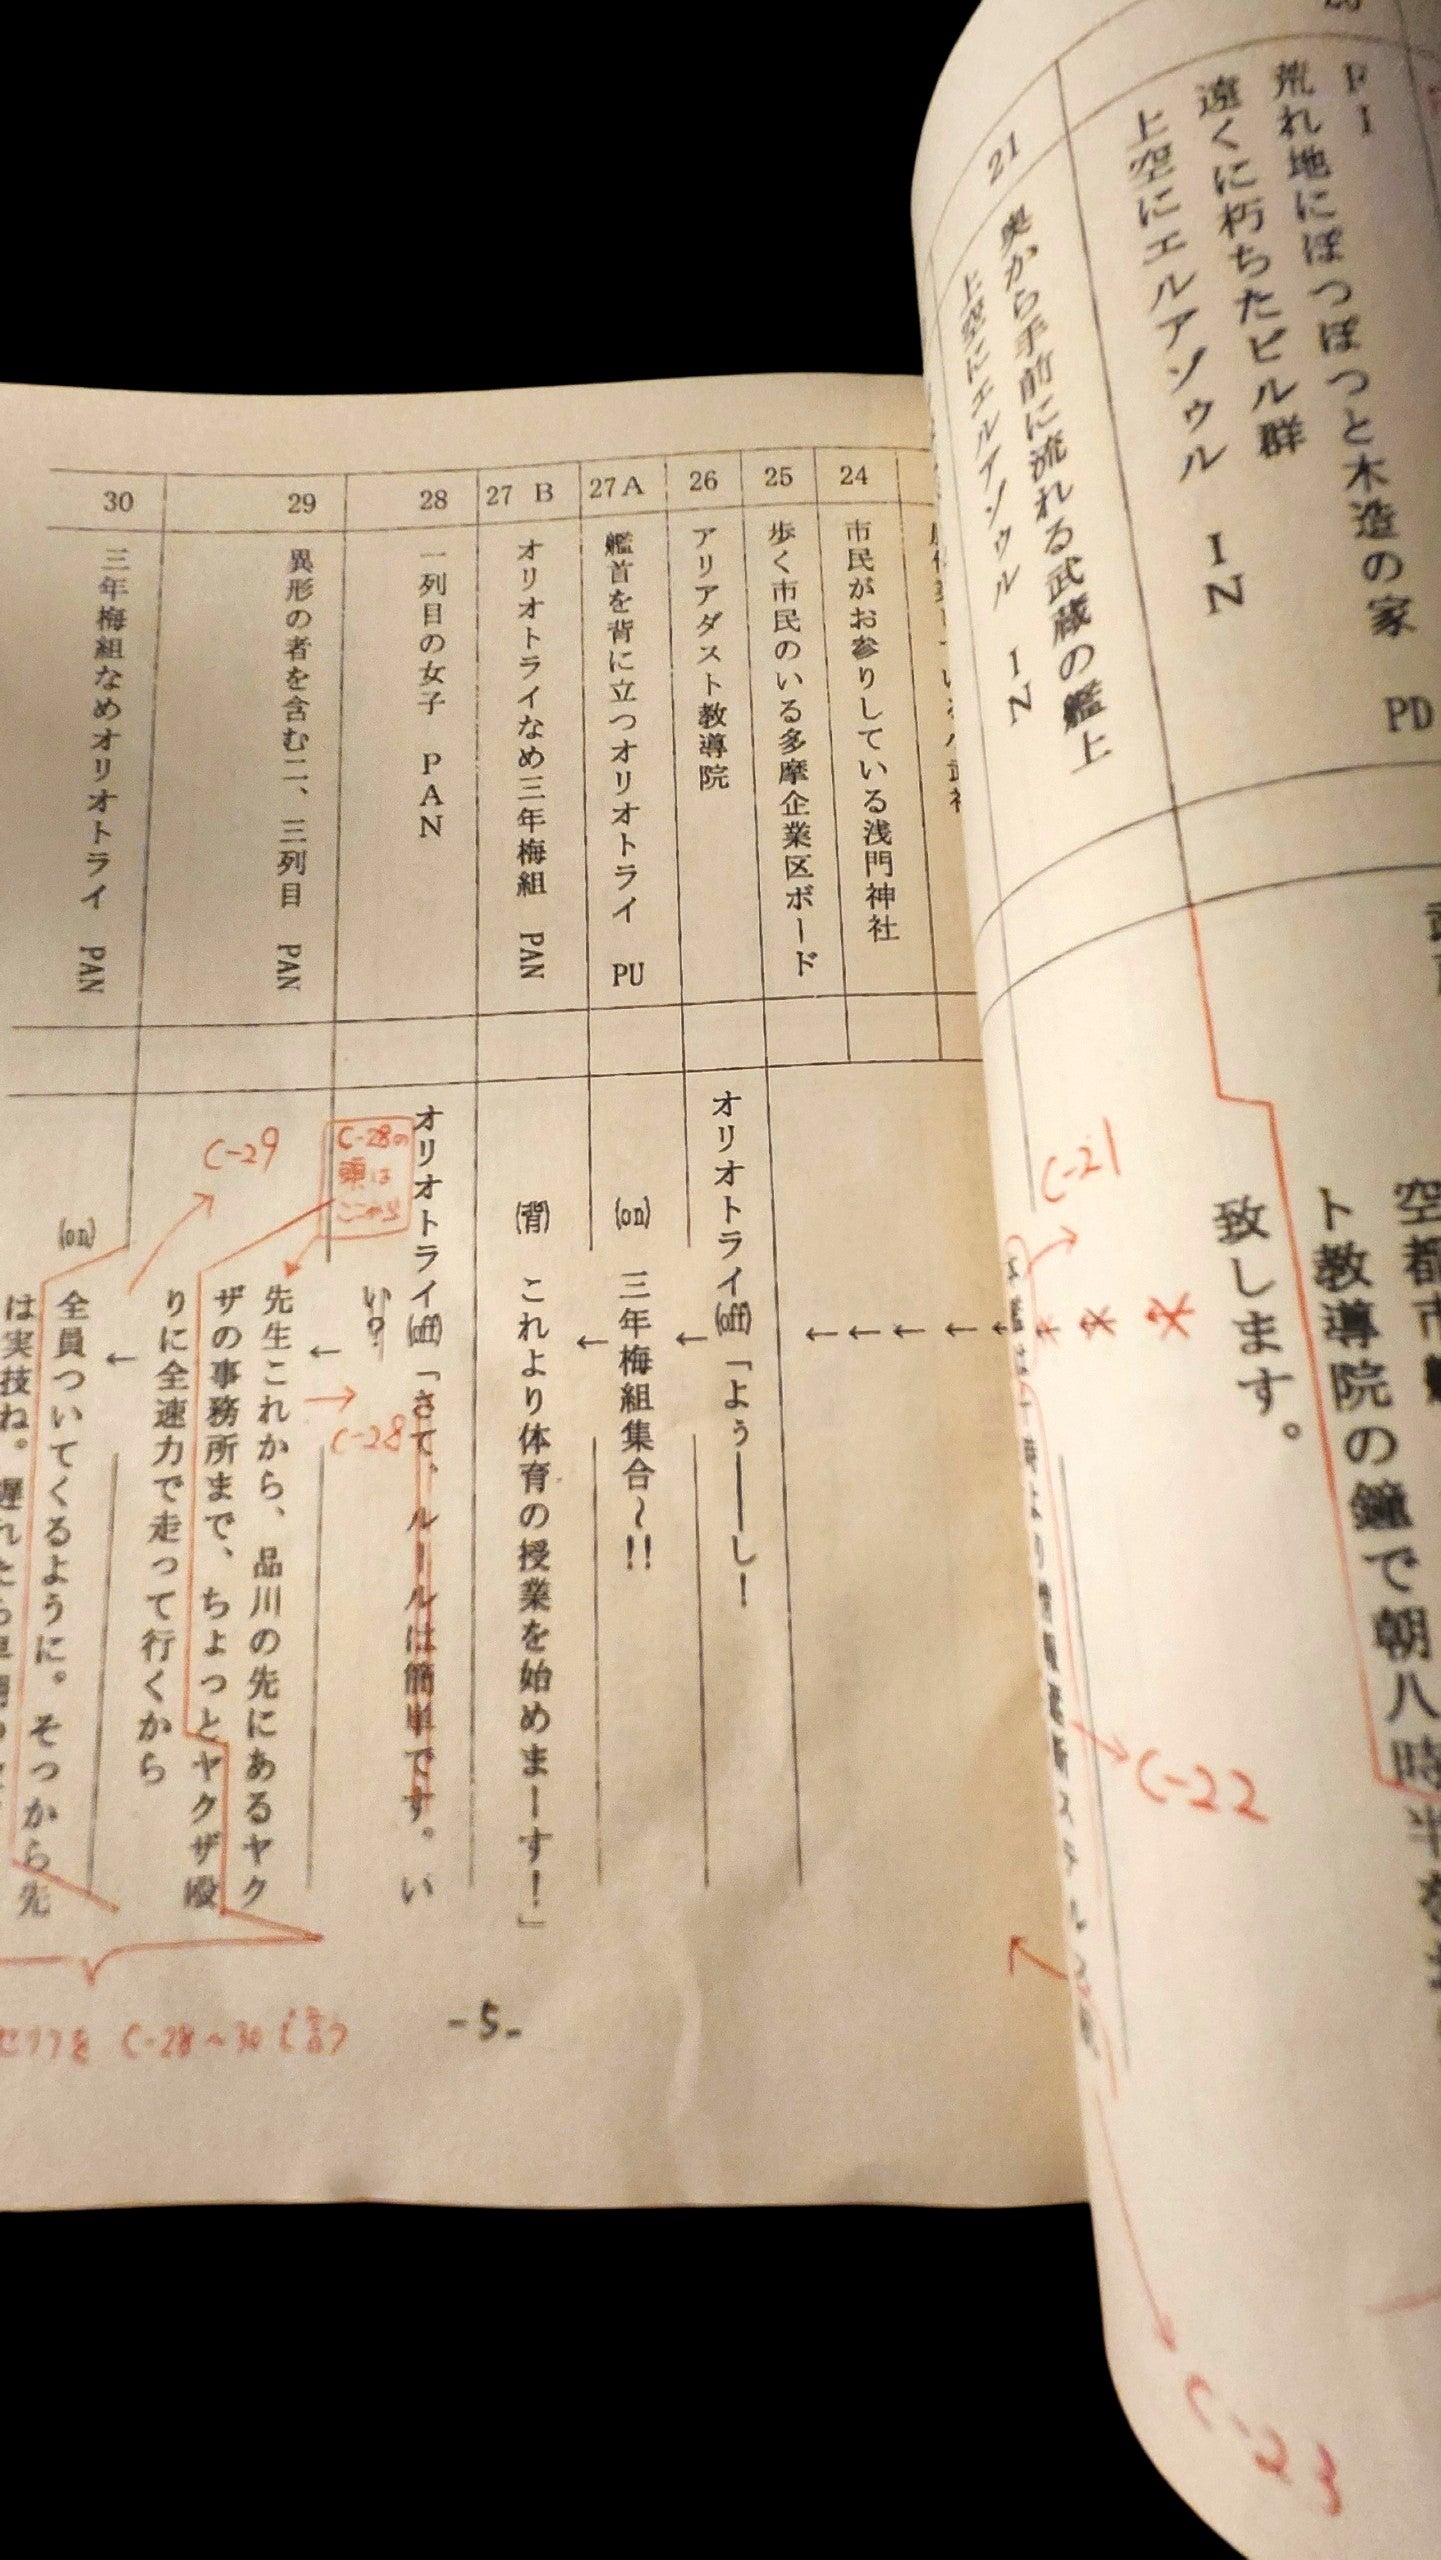 FI
荒れ地にぽつぽつと木造の家 PD
遠くに朽ちたビル群
上空にエルアゾゥル IN
空都市
ト教導院の鐘で朝八時半を
致します。
21
奥から手前に流れる武蔵の艦上
上空にエルアゾゥル IN
C-21
C-22
C-23
24
市民がお参りしている浅門神社
25
歩く市民のいる多摩企業区ボード
26
アリアダスト教導院
オリオトライ(off)「よう――し!
27A
艦首を背に立つオリオトライ PU
(on) 三年梅組集合~!!
27 B
オリオトライなめ三年梅組 PAN
(背) これより体育の授業を始めまーす!」
28
一列目の女子 PAN
オリオトライ(off)「さて、ルールは簡単です。い
い?
C-28
C-28の
頭は
ここから
29
異形の者を含む二、三列目 PAN
先生これから、品川の先にあるヤク
ザの事務所まで、ちょっとヤクザ殴
りに全速力で走って行くから
C-29
30
三年梅組なめオリオトライ PAN
(on) 全員ついてくるように。そっから先
は実技ね。遅れたら早
セリフを C-28~30で言う
-5-